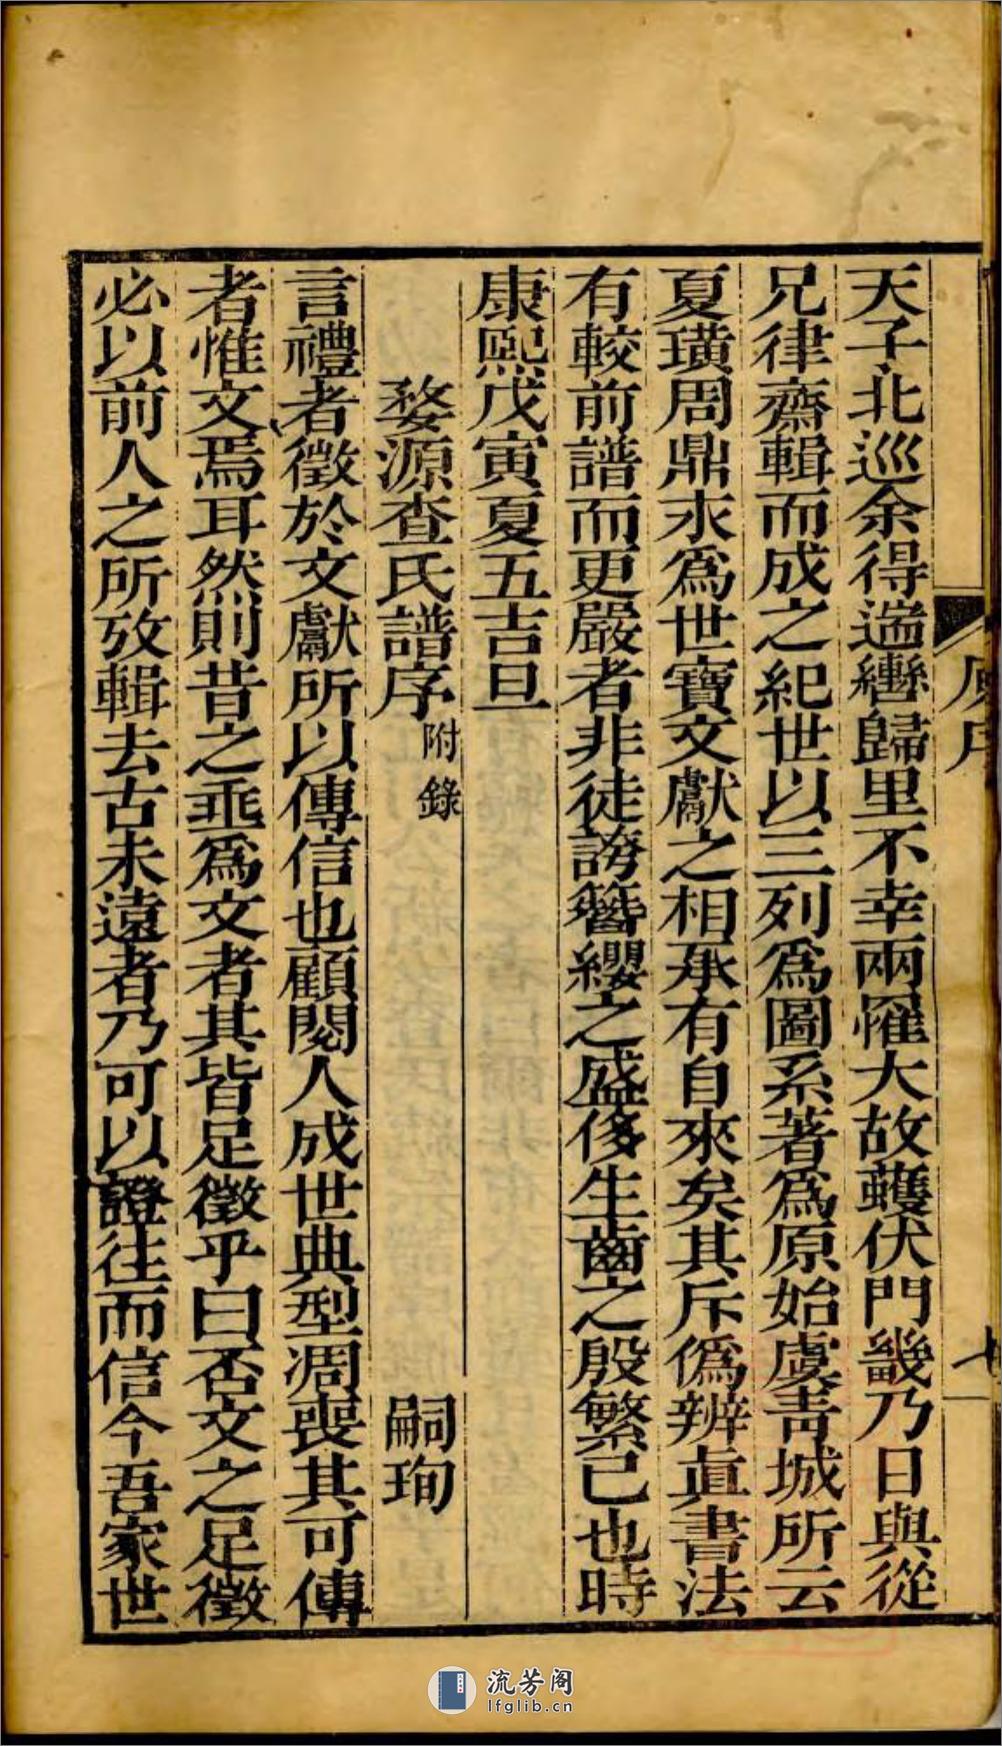 天子北巡余得遄轡歸里不幸兩罹大故蠖伏門畿乃日與從
兄律齋輯而成之紀世以三列爲圖系著爲原始虞青城所云
夏璜周鼎永爲世寶文獻之相承有自來矣其斥僞辨眞書法
有較前譜而更嚴者非徒誇簪纓之盛侈生齒之殷繁已也時
康熙戊寅夏五吉旦
婺源查氏譜序 附錄 嗣珣
言禮者徵於文獻所以傳信也顧閱人成世典型凋喪其可傳
者惟文焉耳然則昔之垂爲文者其皆足徵乎曰否文之足徵
必以前人之所攷輯去古未遠者乃可以證往而信今吾家世
流芳阁
lfglib.cn